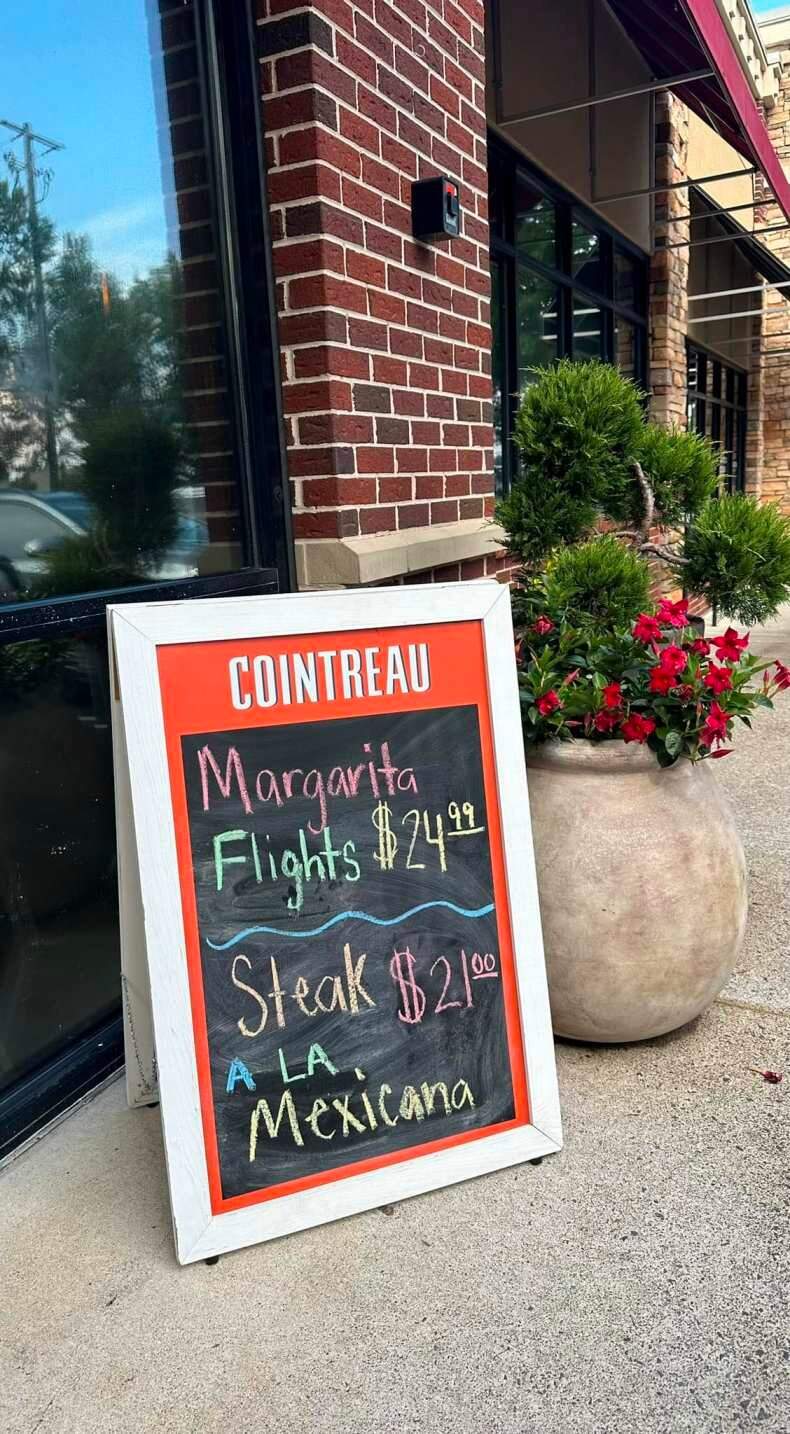 COINTREAU
Margarita
Flights $24.99
Steak $21.00
A LA
Mexicana